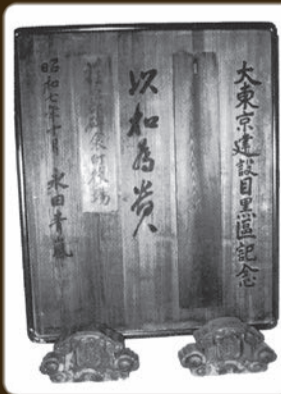 大東京建設目黑區記念
以和為貴
荏原郡碑衾町役場
昭和七年十月 永田青嵐